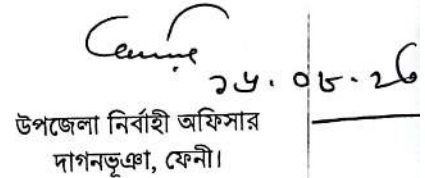 ১৬.০৮.২৩
উপজেলা নির্বাহী অফিসার
দাগনভূঞা, ফেনী।